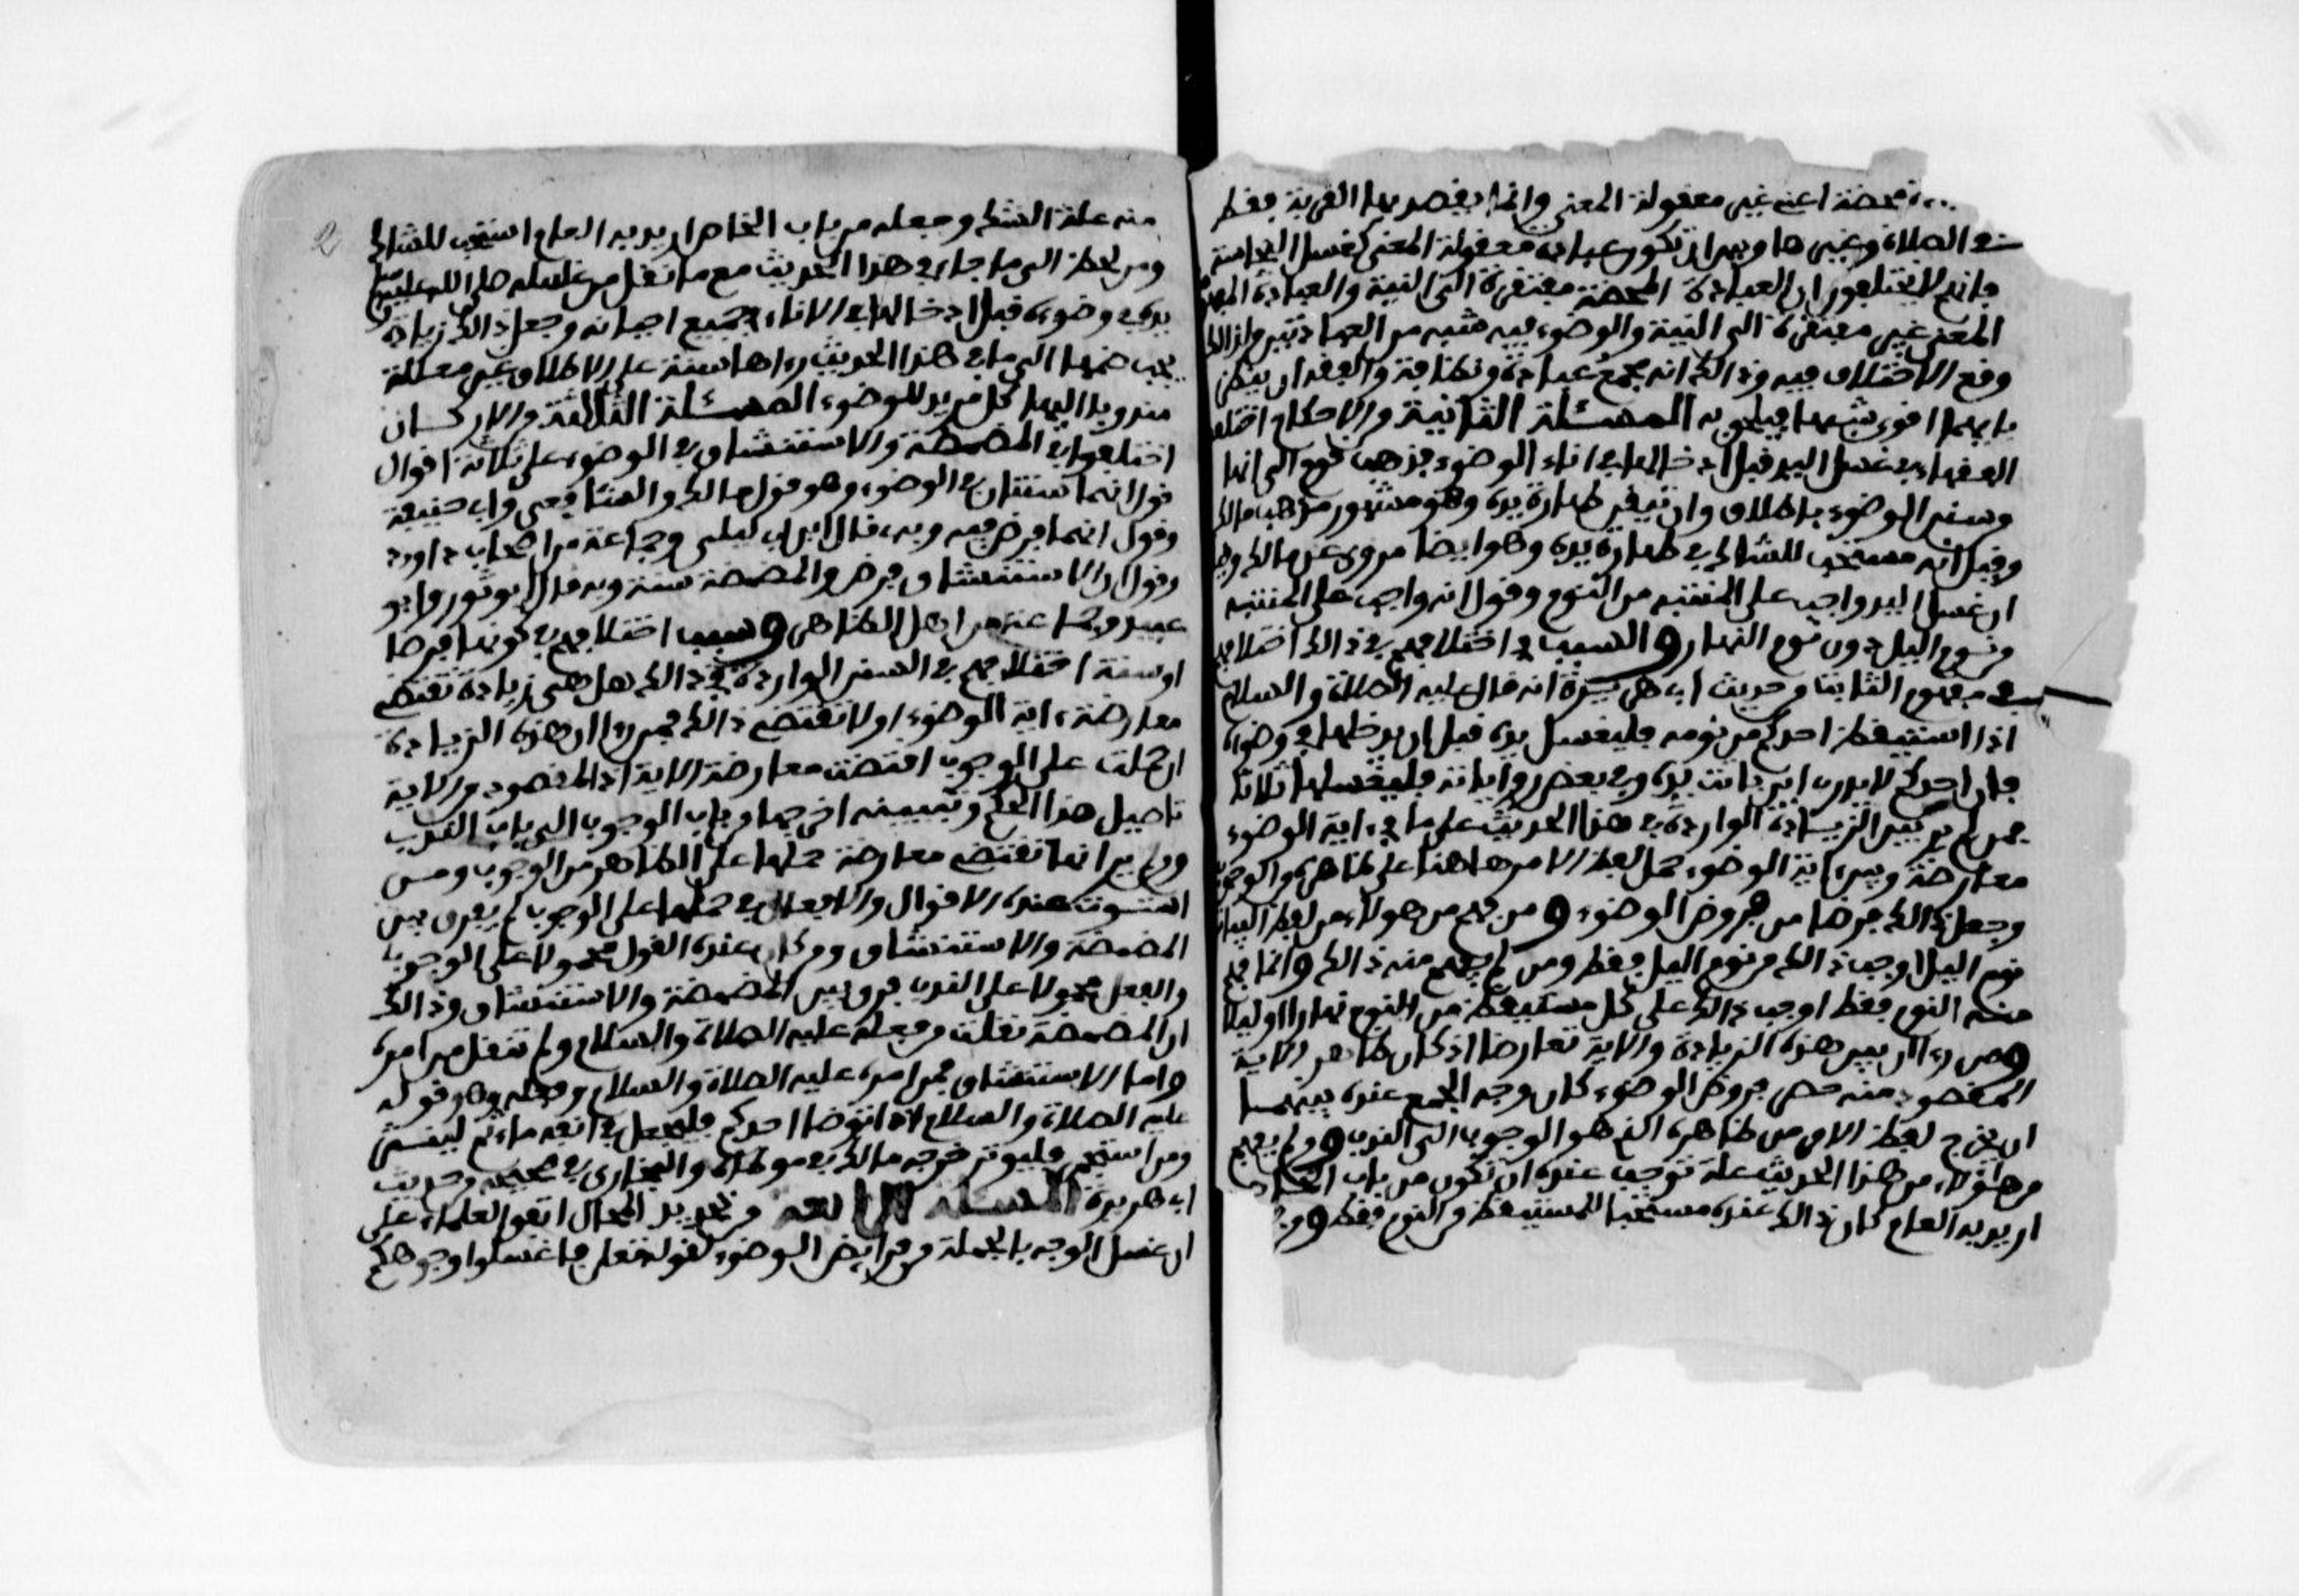 محضة اعني غير معقولة المعنى وانما يقصد بها القربة فقط
الصلاة وغيرها وبين ان تكون عبادة معقولة المعنى كغسل النجاسة
فانهم لا يختلفون ان العبادة المحضة مفتقرة الى النية والعبادة المفهومة
المعنى غير مفتقرة الى النية والوضوء فيه شبه من العبادتين ولذالك
وقع الاختلاف فيه وذالك انه يجمع عبادة ونظافة والفقه ان ينظر
بايهما اقوى شبها فيلحق به المسئلة الثانية من الاحكام اختلف
الفقهاء في غسل اليد قبل ادخالها في اناء الوضوء فذهب قوم الى انها
من سنن الوضوء باطلاق وان تيقن طهارة يده وهو مشهور مذهب مالك
وقيل انه مستحب للشاك في طهارة يده وهو ايضا مروي عن مالك وقيل
ان غسل اليد واجب على المنتبه من النوم وقول انه واجب على المنتبه
من نوم الليل دون نوم النهار والسبب في اختلافهم في ذالك اختلافهم
في مفهوم الثابت من حديث ابي هريرة انه قال عليه الصلاة والسلام
اذا استيقظ احدكم من نومه فليغسل يده قبل ان يدخلها في وضوئه
فان احدكم لا يدري اين باتت يده وفي بعض رواياته فليغسلها ثلاثا
فمن لم ير بين الزيادة الواردة في هذا الحديث على ما في ءاية الوضوء
معارضة وبين ءاية الوضوء حمل لفظ الامر هاهنا على ظاهره من الوجوب
وجعل ذالك فرضا من فروض الوضوء ومن فهم من هولاء من لفظ البيات
نوم الليل اوجب ذالك من نوم الليل فقط ومن لم يفهم منه ذالك وانما فهم
منه النوم فقط اوجب ذالك على كل مستيقظ من النوم نهارا او ليلا
ومن رءا ان بين هذه الزيادة والاية تعارضا اذ كان ظاهر الاية
المقصود منه حصر فروض الوضوء كان وجه الجمع عنده بينهما
ان يخرج لفظ الامر من ظاهره الذي هو الوجوب الى الندب ومن لم يفهم
من هؤلاء من هذا الحديث علة توجب عنده ان تكون من باب الخاص
اريد به العام كان ذالك عنده مستحبا للمستيقظ من النوم فقط ومن
منه علة الشك وجعله من باب الخاص اريد به العام استحب للشاك
ومن لحظ الى ما جاء في هذا الحديث مع ما نقل من غسله صلى الله عليه وسلم
يده في وضوئه قبل ادخالها في الاناء في جميع احيانه وجعل ذالك زيادة
يجب ضمها الى ما في هذا الحديث رءاها سنة على الاطلاق غير معللة
مندوبا اليها كل مريد للوضوء المسئلة الثالثة من الاركان
اختلفوا في المضمضة والاستنشاق في الوضوء على ثلاثة اقوال
قول انهما سنتان في الوضوء وهو قول مالك والشافعي وابي حنيفة
وقول انهما فرض فيه وبه قال ابن ابي ليلى وجماعة من اصحاب داوود
وقول ان الاستنشاق فرض والمضمضة سنة وبه قال ابو ثور وابو
عبيد وجماعة من اهل الظاهر وسبب اختلافهم في كونها فرضا
او سنة اختلافهم في السنن الواردة في ذالك هل هي زيادة تقتضي
معارضة ءاية الوضوء او لا تقتضي ذالك فمن رءا ان هذه الزيادة
ان حملت على الوجوب اقتضت معارضة الاية اذ المقصود من الاية
تاصيل هذا الحكم وتبيينه اخرجها من باب الوجوب الى باب الندب
ومن لم ير انها تقتضي معارضة حملها على الظاهر من الوجوب ومن
استوت عنده الاقوال والافعال في حملها على الوجوب لم يفرق بين
المضمضة والاستنشاق ومن كان عنده القول محمولا على الوجوب
والفعل محمولا على الندب فرق بين المضمضة والاستنشاق وذالك
ان المضمضة نقلت من فعله عليه الصلاة والسلام ولم تنقل من امره
واما الاستنشاق فمن امره عليه الصلاة والسلام وفعله وهو قوله
عليه الصلاة والسلام اذا توضا احدكم فليجعل في انفه ماء ثم لينثر
ومن استجمر فليوتر خرجه مالك في موطئه والبخاري في صحيحه من حديث
ابي هريرة المسئلة الرابعة من تحديد المحال اتفق العلماء على
ان غسل الوجه بالجملة من فرايض الوضوء لقوله تعلى فاغسلوا وجوهكم
2